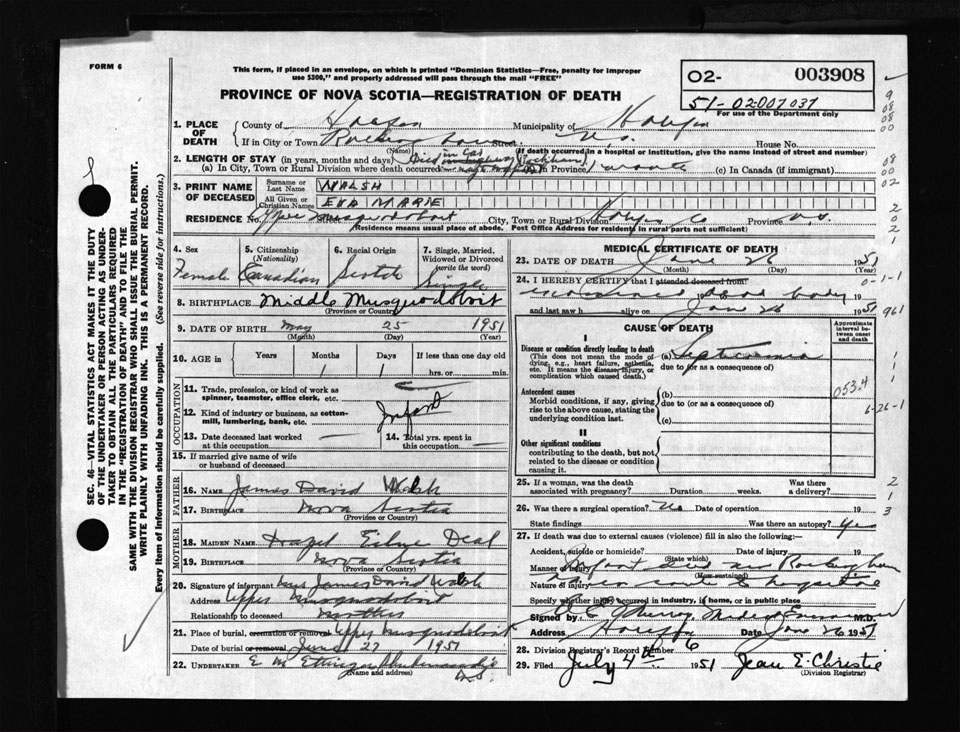 FORM 6
This form, if placed in an envelope, on which is printed "Dominion Statistics—Free, penalty for improper
use $300," and properly addressed will pass through the mail "FREE"
PROVINCE OF NOVA SCOTIA—REGISTRATION OF DEATH
02- 003908
51-02-007037
For use of the Department only
1. PLACE OF DEATH
County of Halifax Municipality of Halifax
If in City or Town Street N.S. House No.
(Name) (If death occurred in a hospital or institution, give the name instead of street and number)
2. LENGTH OF STAY (in years, months and days)
(a) In City, Town or Rural Division where death occurred (b) In Province 1 month (c) In Canada (if immigrant)
3. PRINT NAME OF DECEASED
Surname or Last Name WALSH
All Given or Christian Names EVA MARIE
RESIDENCE No. Upper Musquodoboit Street City, Town or Rural Division Halifax Co Province N.S.
(Residence means usual place of abode. Post Office Address for residents in rural parts not sufficient)
4. Sex
Female
5. Citizenship
(Nationality)
Canadian
6. Racial Origin
Scotch
7. Single, Married, Widowed or Divorced
(write the word)
Single
8. BIRTHPLACE Middle Musquodoboit
(Province or Country)
9. DATE OF BIRTH May 25 1951
(Month) (Day) (Year)
10. AGE in Years Months Days If less than one day old
1 1 hrs. or min.
OCCUPATION
11. Trade, profession, or kind of work as
spinner, teamster, office clerk, etc.
12. Kind of industry or business, as cotton-
mill, lumbering, bank, etc.
Infant
13. Date deceased last worked
at this occupation
14. Total yrs. spent in
this occupation
15. If married give name of wife
or husband of deceased
FATHER
16. NAME James David Walsh
17. BIRTHPLACE Nova Scotia
(Province or Country)
MOTHER
18. MAIDEN NAME Deal
19. BIRTHPLACE Nova Scotia
(Province or Country)
20. Signature of informant Mrs James David Walsh
Address Upper Musquodoboit
Relationship to deceased Mother
21. Place of burial, cremation or removal Upper Musquodoboit
Date of burial or removal June 27 1951
22. UNDERTAKER E M Ettinger Shubenacadie
(Name and address) N.S.
MEDICAL CERTIFICATE OF DEATH
23. DATE OF DEATH June 26 1951
(Month) (Day) (Year)
24. I HEREBY CERTIFY that I attended deceased from: 0-1-1
dead body
and last saw h alive on June 26 1951 961
CAUSE OF DEATH
Approximate interval between onset and death
I
Disease or condition directly leading to death
(This does not mean the mode of
dying, e.g., heart failure, asthenia,
etc. It means the disease, injury, or
complication which caused death.)
(a) Septicaemia
due to (or as a consequence of)
Antecedent causes
Morbid conditions, if any, giving
rise to the above cause, stating the
underlying condition last.
(b)
due to (or as a consequence of)
(c)
053.4
6-26-1
II
Other significant conditions
contributing to the death, but not
related to the disease or condition
causing it.
25. If a woman, was the death Was there
associated with pregnancy? Duration weeks. a delivery?
26. Was there a surgical operation? No Date of operation 19
State findings Was there an autopsy? Yes
27. If death was due to external causes (violence) fill in also the following:—
Accident, suicide or homicide? Date of injury 19
(State which)
Manner of injury Infant died near
(How sustained)
Nature of injury en route to hospital
Specify whether injury occurred in industry, in home, or in public place
Signed by Murray M.D.
Address Halifax Date June 26 1951
28. Division Registrar's Record Number 6
29. Filed July 4th 1951 Jean E. Christie
(Division Registrar)
SEC. 46—VITAL STATISTICS ACT MAKES IT THE DUTY
OF THE UNDERTAKER OR PERSON ACTING AS UNDER-
TAKER TO OBTAIN ALL THE PARTICULARS REQUIRED
IN THE "REGISTRATION OF DEATH" AND TO FILE THE
SAME WITH THE DIVISION REGISTRAR WHO SHALL ISSUE THE BURIAL PERMIT.
WRITE PLAINLY WITH UNFADING INK. THIS IS A PERMANENT RECORD.
Every Item of Information should be carefully supplied. (See reverse side for instructions.)
9
08
08
00
08
00
02
2
0
2
1
1
1
1
2
1
3